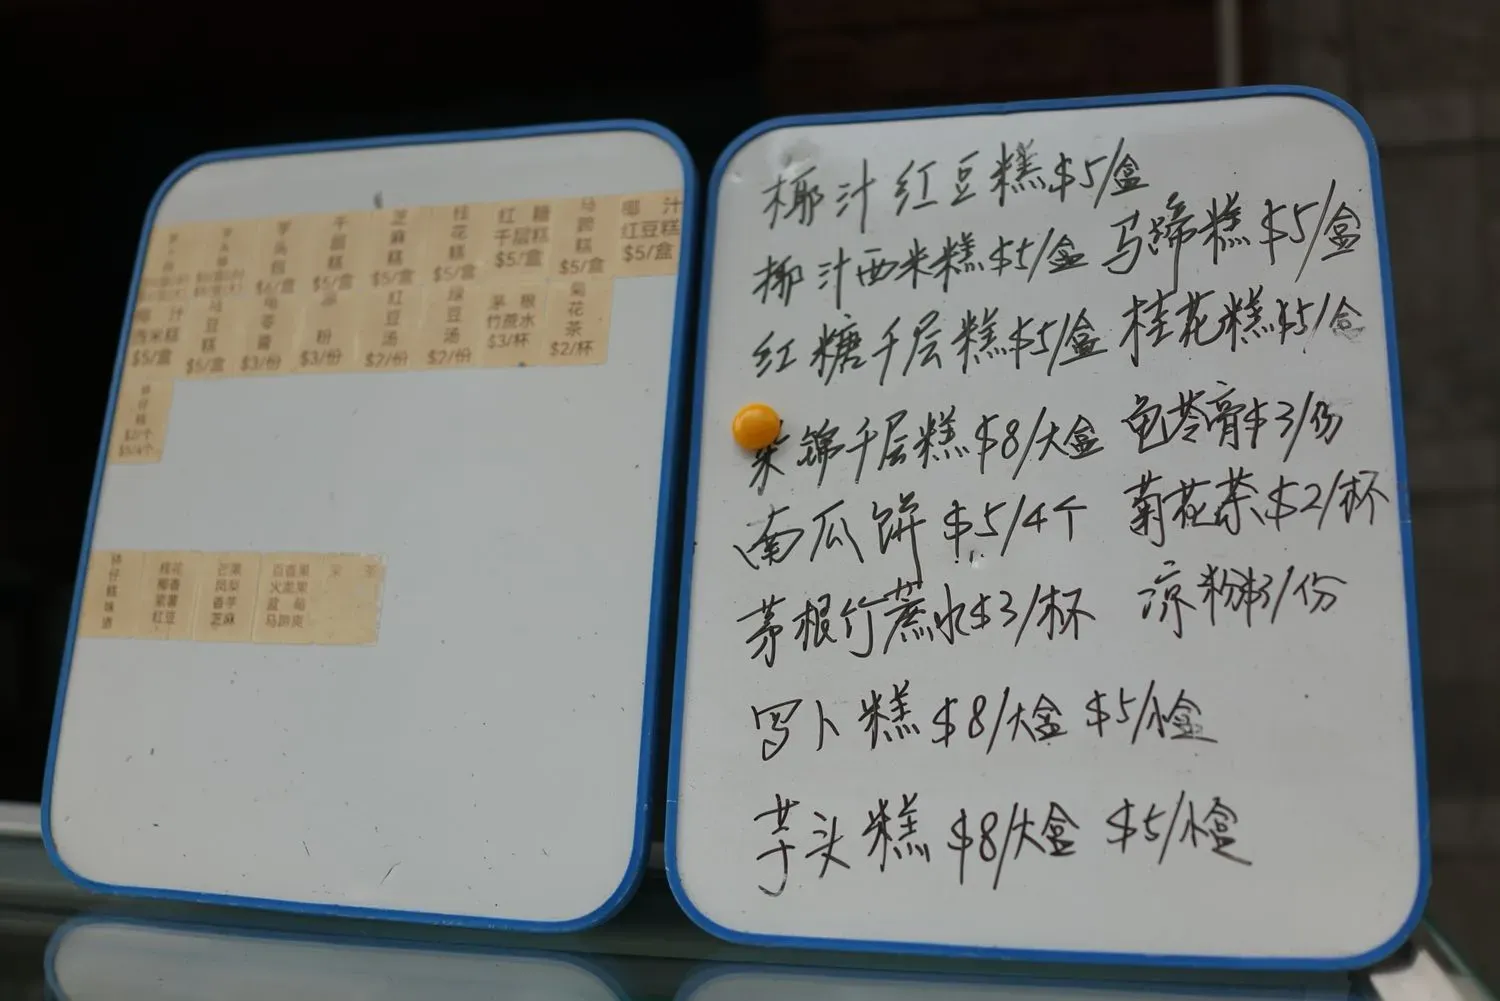 椰汁
红豆糕
$5/盒
马
蹄
糕
$5/盒
红糖
千层糕
$5/盒
桂
花
糕
$5/盒
芝
麻
糕
$5/盒
千
层
糕
$5/盒
芋
头
糕
椰汁
西米糕
$5/盒
马
豆
糕
$5/盒
龟
苓
膏
$3/份
凉
粉
$3/份
红
豆
汤
$2/份
绿
豆
汤
$2/份
茅根
竹蔗水
$3/杯
菊
花
茶
$2/杯
钵
仔
糕
$2/个
钵
仔
糕
味
道
桂花
椰香
紫薯
红豆
芒果
凤梨
香芋
芝麻
百香果
火龙果
蓝莓
马蹄爽
椰汁红豆糕$5/盒
椰汁西米糕$5/盒 马蹄糕$5/盒
红糖千层糕$5/盒 桂花糕$5/盒
锦千层糕$8/大盒 龟苓膏$3/份
南瓜饼 $5/4个 菊花茶$2/杯
茅根竹蔗水$3/杯 凉粉$3/份
罗卜糕$8/大盒 $5/小盒
芋头糕$8/大盒 $5/小盒